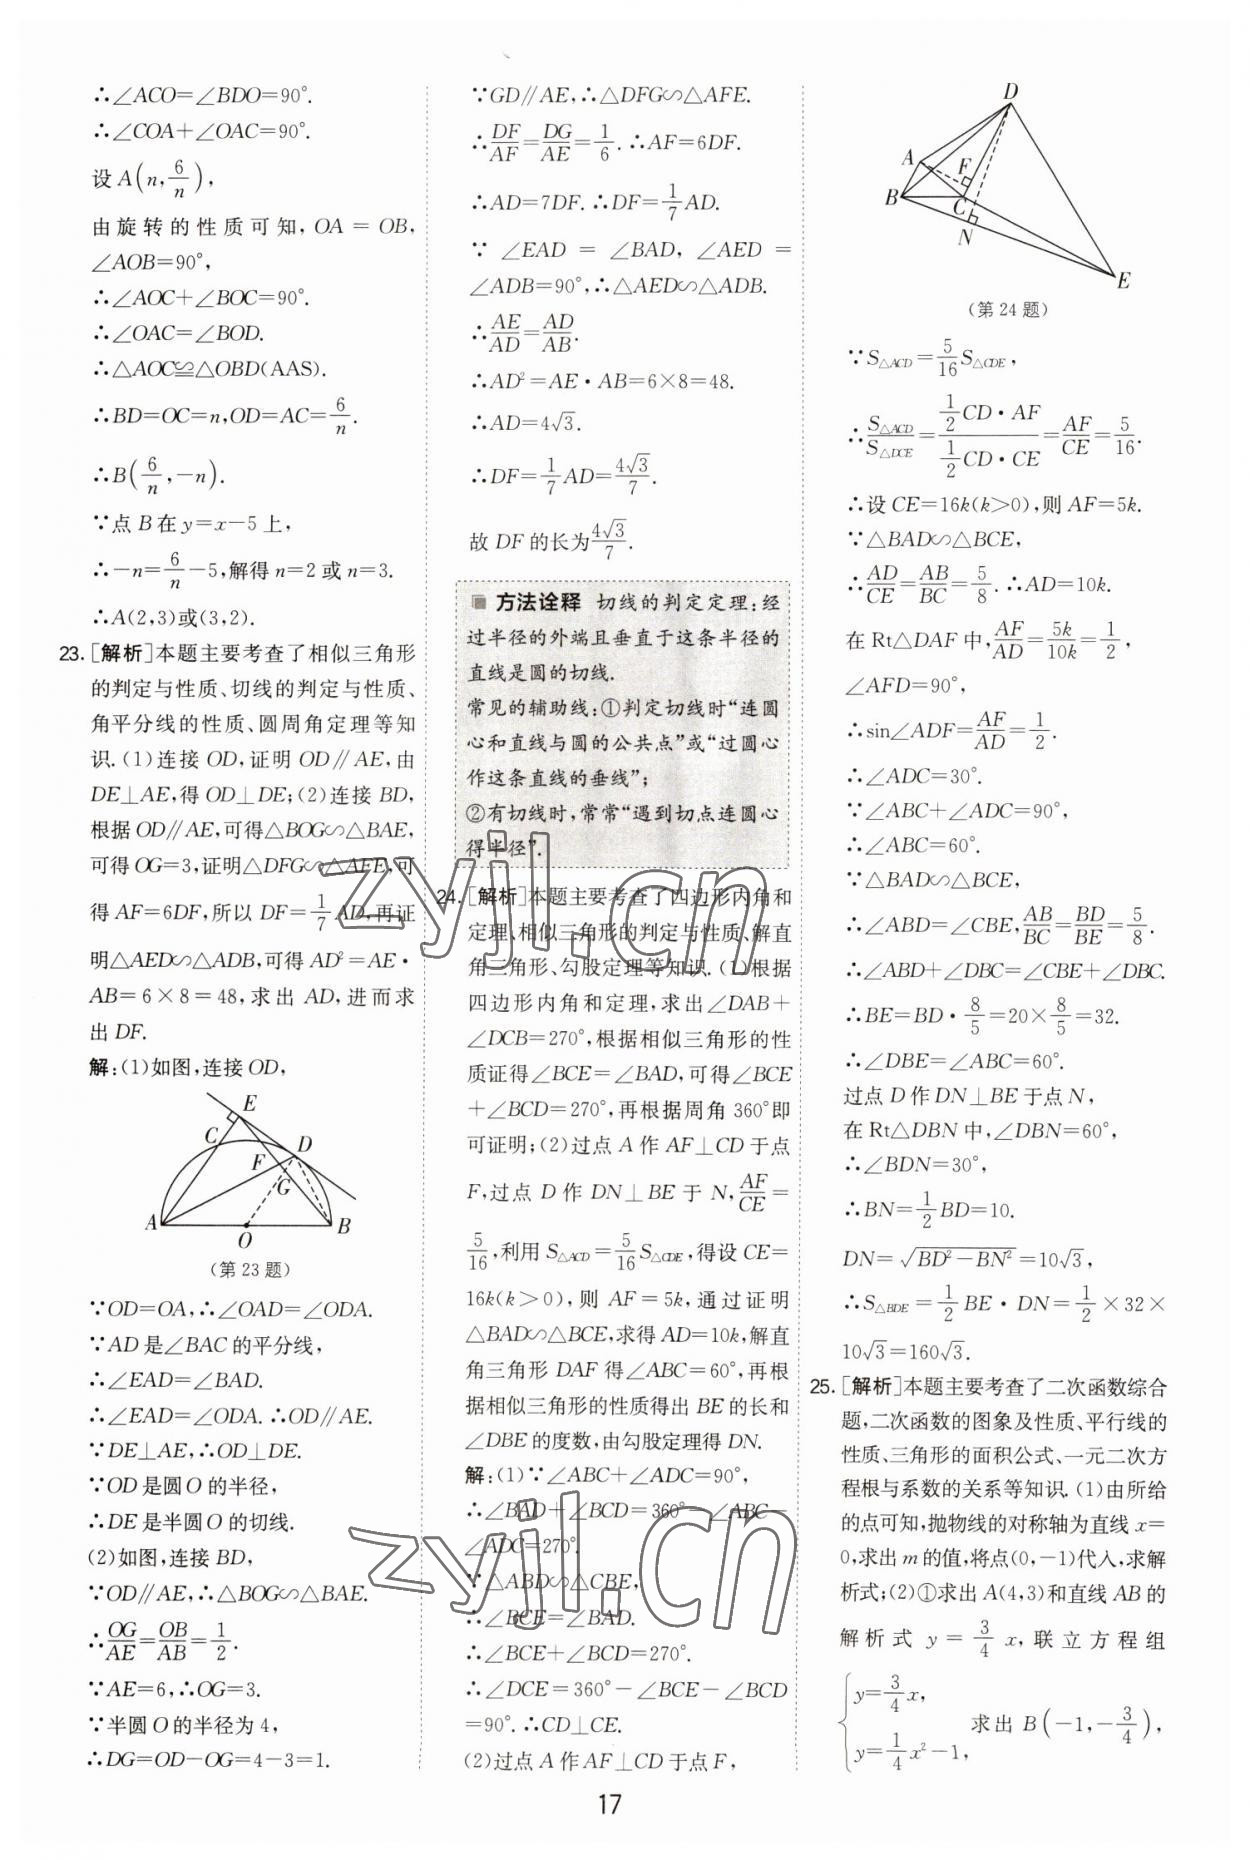 ∴∠ACO=∠BDO=90°.
∴∠COA+∠OAC=90°.
设 A(n, 6/n),
由旋转的性质可知,OA = OB,
∠AOB=90°,
∴∠AOC+∠BOC=90°.
∴∠OAC=∠BOD.
∴△AOC≌△OBD(AAS).
∴BD=OC=n,OD=AC=6/n.
∴B(6/n,-n).
∵点 B 在 y=x-5 上,
∴-n=6/n-5,解得 n=2 或 n=3.
∴A(2,3)或(3,2).
23. [解析]本题主要考查了相似三角形
的判定与性质、切线的判定与性质、
角平分线的性质、圆周角定理等知
识.(1)连接 OD,证明 OD∥AE,由
DE⊥AE,得 OD⊥DE;(2)连接 BD,
根据 OD∥AE,可得△BOG∽△BAE,
可得 OG=3,证明△DFG∽△AFE,可
得 AF=6DF,所以 DF=1/7AD,再证
明△AED∽△ADB,可得 AD²=AE·
AB=6×8=48,求出 AD,进而求
出 DF.
解:(1)如图,连接 OD,
E
C
D
F
G
A
O
B
(第 23 题)
∵OD=OA,∴∠OAD=∠ODA.
∵AD 是∠BAC 的平分线,
∴∠EAD=∠BAD.
∴∠EAD=∠ODA.∴OD∥AE.
∵DE⊥AE,∴OD⊥DE.
∵OD 是圆 O 的半径,
∴DE 是半圆 O 的切线.
(2)如图,连接 BD,
∵OD∥AE,∴△BOG∽△BAE.
∴OG/AE=OB/AB=1/2.
∵AE=6,∴OG=3.
∵半圆 O 的半径为 4,
∴DG=OD-OG=4-3=1.
∵GD∥AE,∴△DFG∽△AFE.
∴DF/AF=DG/AE=1/6.∴AF=6DF.
∴AD=7DF.∴DF=1/7AD.
∵∠EAD = ∠BAD, ∠AED =
∠ADB=90°,∴△AED∽△ADB.
∴AE/AD=AD/AB.
∴AD²=AE·AB=6×8=48.
∴AD=4√3.
∴DF=1/7AD=4√3/7.
故 DF 的长为4√3/7.
方法诠释 切线的判定定理:经
过半径的外端且垂直于这条半径的
直线是圆的切线.
常见的辅助线:①判定切线时“连圆
心和直线与圆的公共点”或“过圆心
作这条直线的垂线”;
②有切线时,常常“遇到切点连圆心
得半径”.
24. [解析]本题主要考查了四边形内角和
定理、相似三角形的判定与性质、解直
角三角形、勾股定理等知识.(1)根据
四边形内角和定理,求出∠DAB+
∠DCB=270°,根据相似三角形的性
质证得∠BCE=∠BAD,可得∠BCE
+∠BCD=270°,再根据周角 360°即
可证明;(2)过点 A 作 AF⊥CD 于点
F,过点 D 作 DN⊥BE 于 N,AF/CE=
5/16,利用 S△ACD=5/16S△CDE,得设 CE=
16k(k>0),则 AF=5k,通过证明
△BAD∽△BCE,求得 AD=10k,解直
角三角形 DAF 得∠ABC=60°,再根
据相似三角形的性质得出 BE 的长和
∠DBE 的度数,由勾股定理得 DN.
解:(1)∵∠ABC+∠ADC=90°,
∴∠BAD+∠BCD=360°-∠ABC-
∠ADC=270°.
∵△ABD∽△CBE,
∴∠BCE=∠BAD.
∴∠BCE+∠BCD=270°.
∴∠DCE=360°-∠BCE-∠BCD
=90°.∴CD⊥CE.
(2)过点 A 作 AF⊥CD 于点 F,
D
A
F
B
C
N
E
(第 24 题)
∵S△ACD=5/16S△CDE,
∴S△ACD/S△DCE=(1/2CD·AF)/(1/2CD·CE)=AF/CE=5/16.
∴设 CE=16k(k>0),则 AF=5k.
∵△BAD∽△BCE,
∴AD/CE=AB/BC=5/8.∴AD=10k.
在 Rt△DAF 中,AF/AD=5k/10k=1/2,
∠AFD=90°,
∴sin∠ADF=AF/AD=1/2.
∴∠ADC=30°.
∵∠ABC+∠ADC=90°,
∴∠ABC=60°.
∵△BAD∽△BCE,
∴∠ABD=∠CBE,AB/BC=BD/BE=5/8.
∴∠ABD+∠DBC=∠CBE+∠DBC.
∴BE=BD·8/5=20×8/5=32.
∴∠DBE=∠ABC=60°.
过点 D 作 DN⊥BE 于点 N,
在 Rt△DBN 中,∠DBN=60°,
∴∠BDN=30°,
∴BN=1/2BD=10.
DN=√(BD²-BN²)=10√3,
∴S△BDE=1/2BE·DN=1/2×32×
10√3=160√3.
25. [解析]本题主要考查了二次函数综合
题,二次函数的图象及性质、平行线的
性质、三角形的面积公式、一元二次方
程根与系数的关系等知识.(1)由所给
的点可知,抛物线的对称轴为直线 x=
0,求出 m 的值,将点(0,-1)代入,求解
析式;(2)①求出 A(4,3)和直线 AB 的
解析式 y = 3/4 x,联立方程组
{y=3/4x, y=1/4x²-1, 求出 B(-1,-3/4),
17
zyjl.cn
zyjl.cn